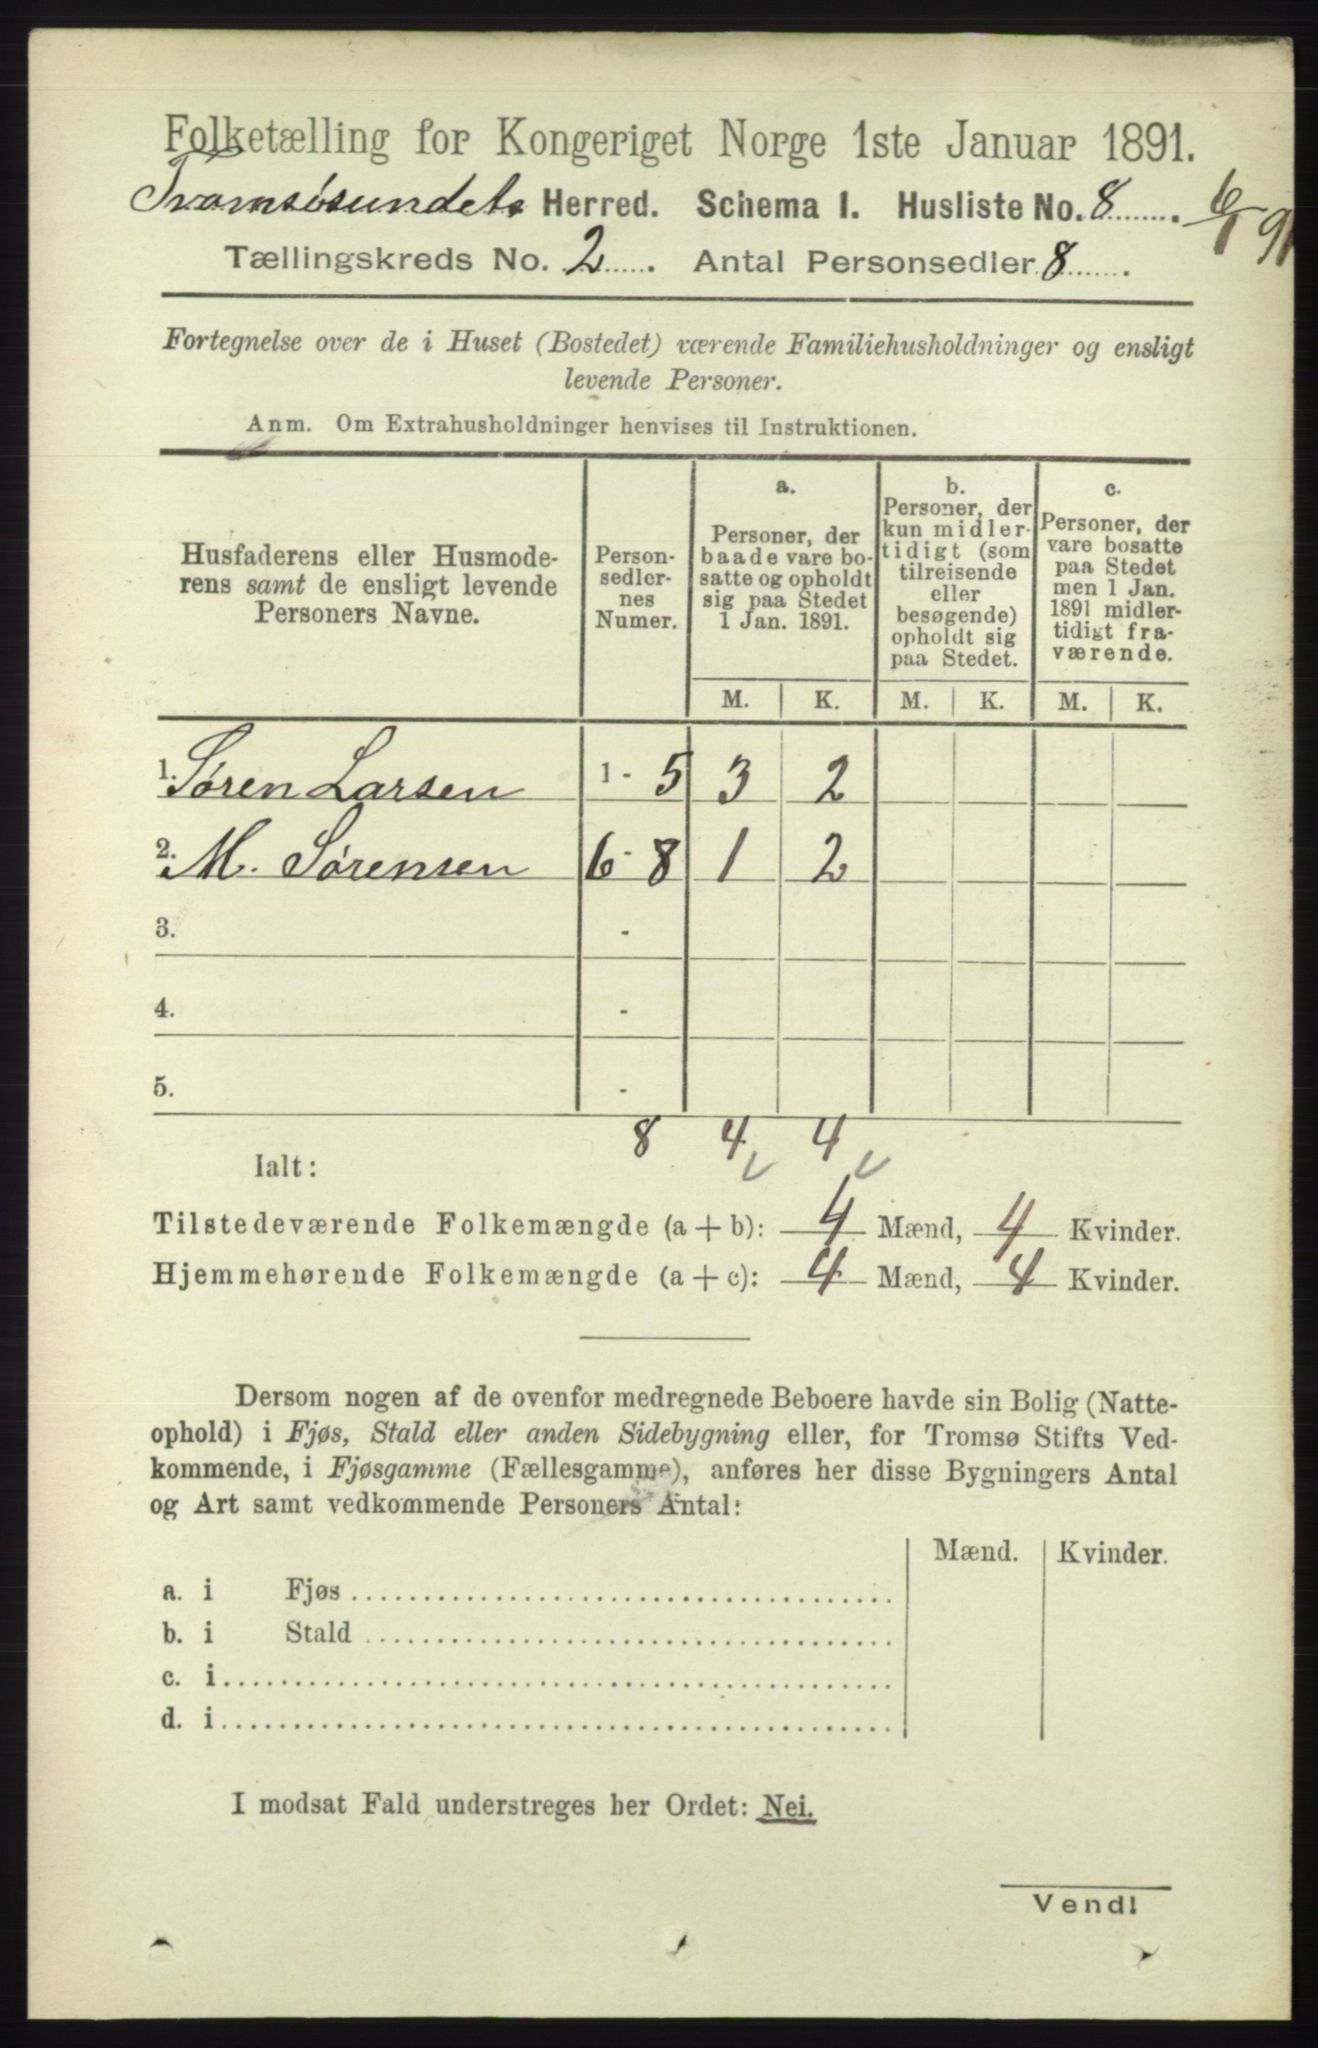 Folketælling for Kongeriget Norge 1ste Januar 1891.
Tromsøsundets Herred. Schema I. Husliste No. 8 . 6/1 91
Tællingskreds No. 2 . Antal Personsedler 8 .
Fortegnelse over de i Huset (Bostedet) værende Familiehusholdninger og ensligt
levende Personer.
Anm. Om Extrahusholdninger henvises til Instruktionen.
Husfaderens eller Husmode-
rens samt de ensligt levende
Personers Navne.
Person-
sedler-
nes
Numer.
a.
Personer, der
baade vare bo-
satte og opholdt
sig paa Stedet
1 Jan. 1891.
b.
Personer, der
kun midler-
tidigt (som
tilreisende
eller
besøgende)
opholdt sig
paa Stedet.
c.
Personer, der
vare bosatte
paa Stedet
men 1 Jan.
1891 midler-
tidigt fra-
værende.
M. K. M. K. M. K.
1. Søren Larsen 1 - 5 3 2
2. M. Sørensen 6 - 8 1 2
3. -
4. -
5. -
8 4 4
Ialt:
Tilstedeværende Folkemængde (a + b): 4 Mænd, 4 Kvinder.
Hjemmehørende Folkemængde (a + c): 4 Mænd, 4 Kvinder.
Dersom nogen af de ovenfor medregnede Beboere havde sin Bolig (Natte-
ophold) i Fjøs, Stald eller anden Sidebygning eller, for Tromsø Stifts Ved-
kommende, i Fjøsgamme (Fællesgamme), anføres her disse Bygningers Antal
og Art samt vedkommende Personers Antal:
Mænd. Kvinder.
a. i Fjøs
b. i Stald
c. i
d. i
I modsat Fald understreges her Ordet: Nei.
Vend!